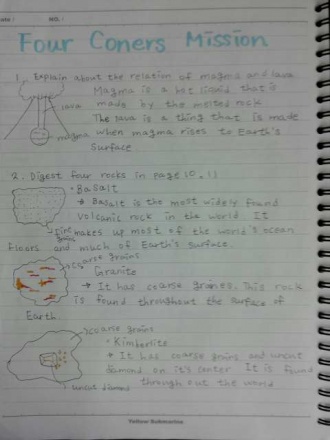 Date: NO.:
Four Coners Mission
1. Explain about the relation of magma and lava
Magma is a hot liquid that is
lava made by the melted rock
The lava is a thing that is made
magma when magma rises to Earth's
Surface
2. Digest four rocks in page 10, 11
• Basalt
→ Basalt is the most widely found
Volcanic rock in the world. It
fine grains makes up most of the world's ocean
Floors and much of Earth's surface.
coarse grains
Granite
→ It has coarse graines. This rock
is found throughout the surface of
Earth
coarse grains
• Kimberlite
→ It has coarse grains and uncut
daimond on it's center It is found
uncut daimond through out the world
Yellow Submarine